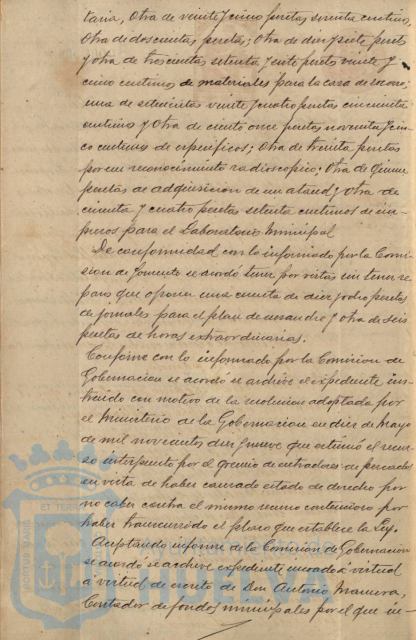 taria, Otra de veinte y cinco pesetas setenta centimos,
Otra de doscientas pesetas; Otra de diez y siete pesets
y otra de trescientas setenta y siete pesets veinte y
cinco centimos de materiales para la casa de socorro;
una de setecientas veinte y cuatro pesetas cincuenta
centimos y Otra de ciento once pesetas noventa y cin-
co centimos de especificos; Otra de treinta pesetas
por un reconocimiento radioscopico; Otra de quince
pesetas de adquisicion de un ataud y otra de
cincuenta y cuatro pesetas setenta centimos de im-
presos para el Laboratorio Municipal
De conformidad con lo informado por la Comi-
sion de Fomento se acordó tener por vistas sin tener re-
paro que oponer una cuenta de diez y ocho pesetas
de jornales para el plan de ensanche y otra de seis
pesetas de horas extraordinarias.
Conforme con lo informado por la Comision de
Gobernacion se acordó se archive el expediente ins-
truido con motivo de la resolucion adoptada por
el Ministerio de la Gobernacion en diez de Mayo
de mil novecientos diez y nueve que estimó el recur-
so interpuesto por el gremio de entradores de pescados
en vista de haber causado estado de derecho por
no caber contra el mismo recurso contencioso por
haber transcurrido el plazo que establece la Ley.
Aceptando informe de la Comision de Gobernacion
se acordó se archive expediente incoado á virtud
á virtud de escrito de Don Antonio
Contador de fondos municipales por el que in-
PORTUS MARIS ET TERRÆ